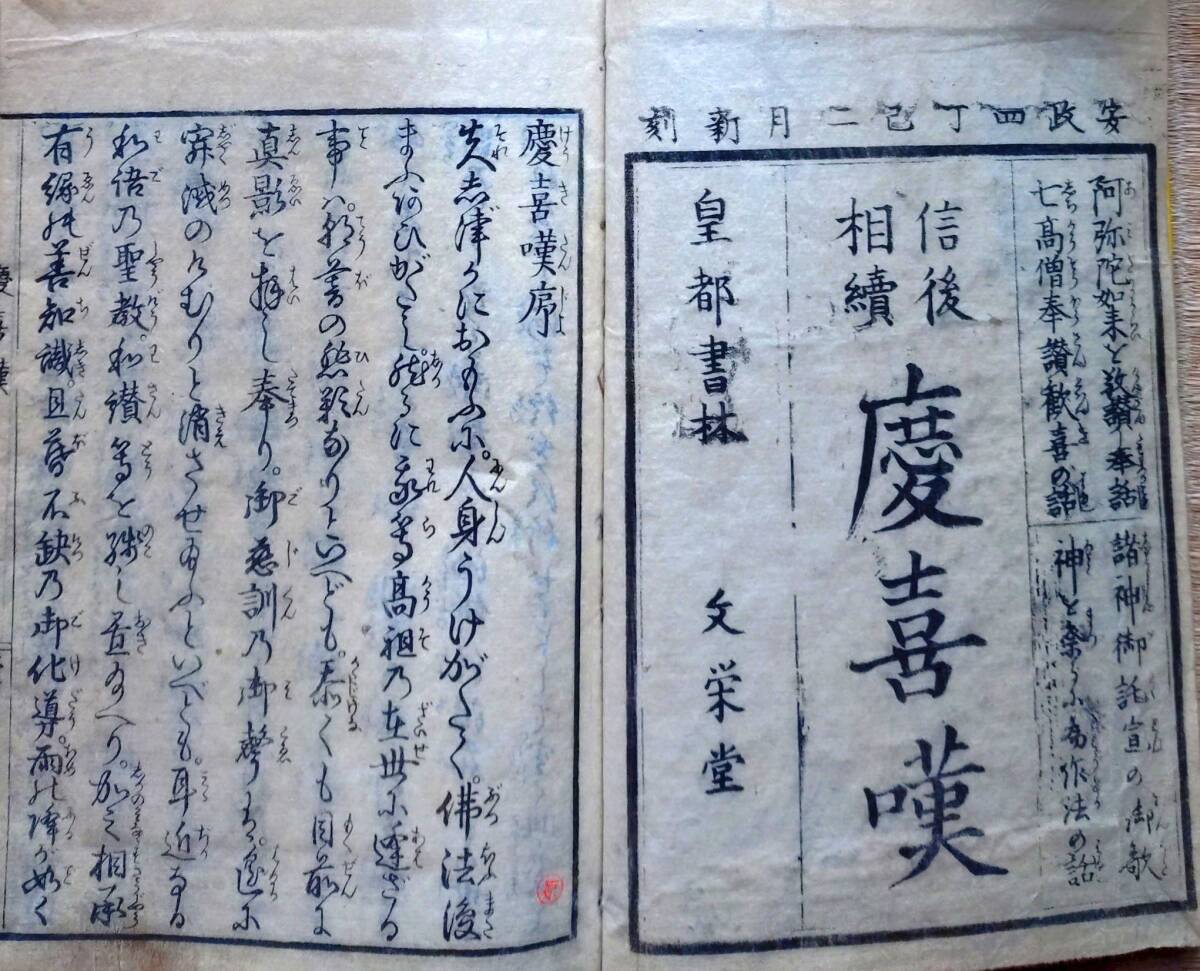 安政四丁巳二月新刻
阿弥陀如来を敬讃奉話
七高僧奉讃歓喜の話
諸神御託宣の御歌
神を祭るに為作法の話
信後
相續
慶喜嘆
皇都書林 文栄堂
慶喜嘆序
夫志津かにおもふに。人身うけがたく。佛法復
まふあひがたし。然るに我等高祖乃在世に逢ざる
事ハ。朝暮の悲歎なりといへども。忝くも目前に
真影を拝し奉り。御慈訓乃御聲ハ。遥に
寂滅のけむりと消させ給ふといへども。耳近なる
和語乃聖教。和讃等を殘し置給へり。加之相承
有縁の善知識。且暮不缺乃御化導。雨の降が如く